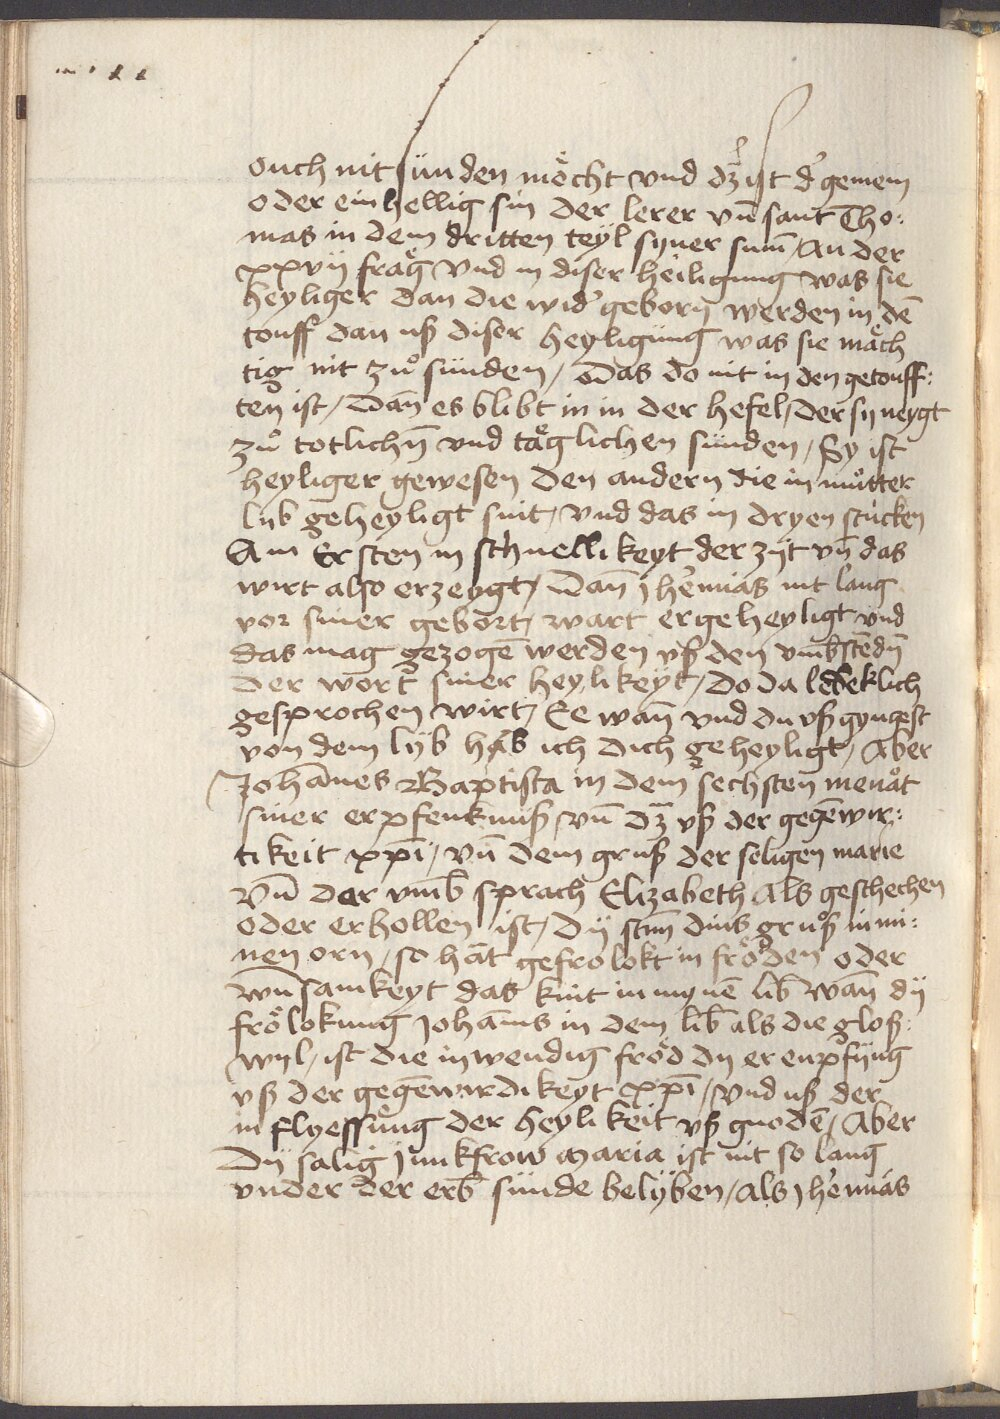 ouch nit sünden möcht vnd dz ist d' gemein
oder einhellig sin der lerer vn̄ sant Tho:
mas in dem dritten teÿl sÿner sum̄ / An der
xxvij frag vnd in diser heiligung was sie
heyliger dan die wid' geborn̄ werden in dē
touff dan uß diser heyligüng was sie mäch
tig nit zuͦ sünden / Das do nit in den getouff:
ten ist / Dan̄ es blibt in in der hefel / der sÿ neygt
zuͦ totlichn̄ vnd täglichen sünden / Sy ist
heyliger gewesen den andern die in muͦtter
lib geheyligt sint / vnd das in dryen stücken
Am Ersten in schnellikeyt der zÿt vn̄ das
wirt also erzeygt / Dan̄ jh'emias nit lang
vor siner gebort / wart er geheyligt vnd
das mag gezogē werden vß den vmb̄stēdn̄
der wort siner heylikeyt / do da
gesprochen wirt / Ee wan̄ vnd du vßgyngest
von dem lÿb hab ich dich geheyligt / Aber
Johānes Baptista in dem sechsten menat
siner erpfenknuß vn̄ dz vß der gegēwir:
tikeit xpī / vn̄ dem gruß der seligen marie
Vn̄ dar vmb̄ sprach Elizabeth Als geschechen
oder erhollen ist / Dÿ stim̄ dins gruͦß in mi:
nen orn / so hāt gefrolokt in fröden oder
wun̄samkeyt das kint in mynē lib̄ wan̄ dÿ
frölokung Johānis in dem lib̄ als die gloß:
wyl / ist die inwendig fröd dÿ er enpfÿng
vß der gegēwirdikeyt xpī / vnd uß der
in flyessung der heylikeit vß gnodē / Aber
Dÿ salig junkfrow maria ist nit so lang
vnder der erb̄ sünde belÿben / Als jh'emias